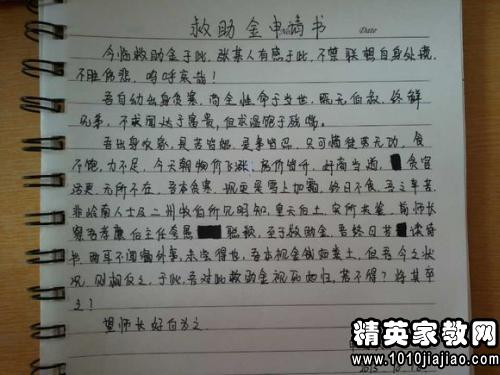 救助金申请书
Date
今临救助金于此，张某人有感于此，不禁联想自身处境，
不胜伤悲，呜呼哀哉！
吾自幼出身贫寒，苟全性命于当世，既无伯叔，终鲜
兄弟，不求闻达于富贵，但求温饱于残喘。
吾出身牧寮，
只可惜徒劳无功，食
不饱，力不足，今天朝物价飞涨，房价皆升，奸商当道，贪官
污吏，无所不在，吾本贫寒，现更是雪上加霜，终日不食，吾之辛苦，
非岭南人士及二州牧伯所见明知，皇天后土，实所共鉴，前师长
察吾孝廉
聪敏，至于救助金，吾终日苦读诗
书，两耳不闻窗外事，未曾得也，吾本视金钱如粪土，但吾今之状
况，则相反之，于此，吾对此救助金视死如归，若不得？将其卒
之？
望师长好自为之
精英家教网
www.1010jiajiao.com